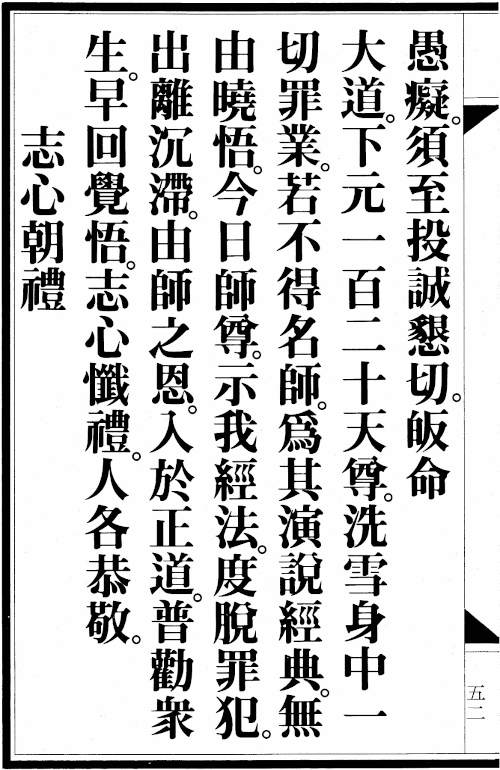 愚癡。須至投誠懇切。皈命
大道。下元一百二十天尊。洗雪身中一
切罪業。若不得名師。爲其演說經典。無
由曉悟。今日師尊。示我經法。度脫罪犯。
出離沉滯。由師之恩。入於正道。普勸衆
生。早回覺悟。志心懺禮。人各恭敬。
志心朝禮
五二